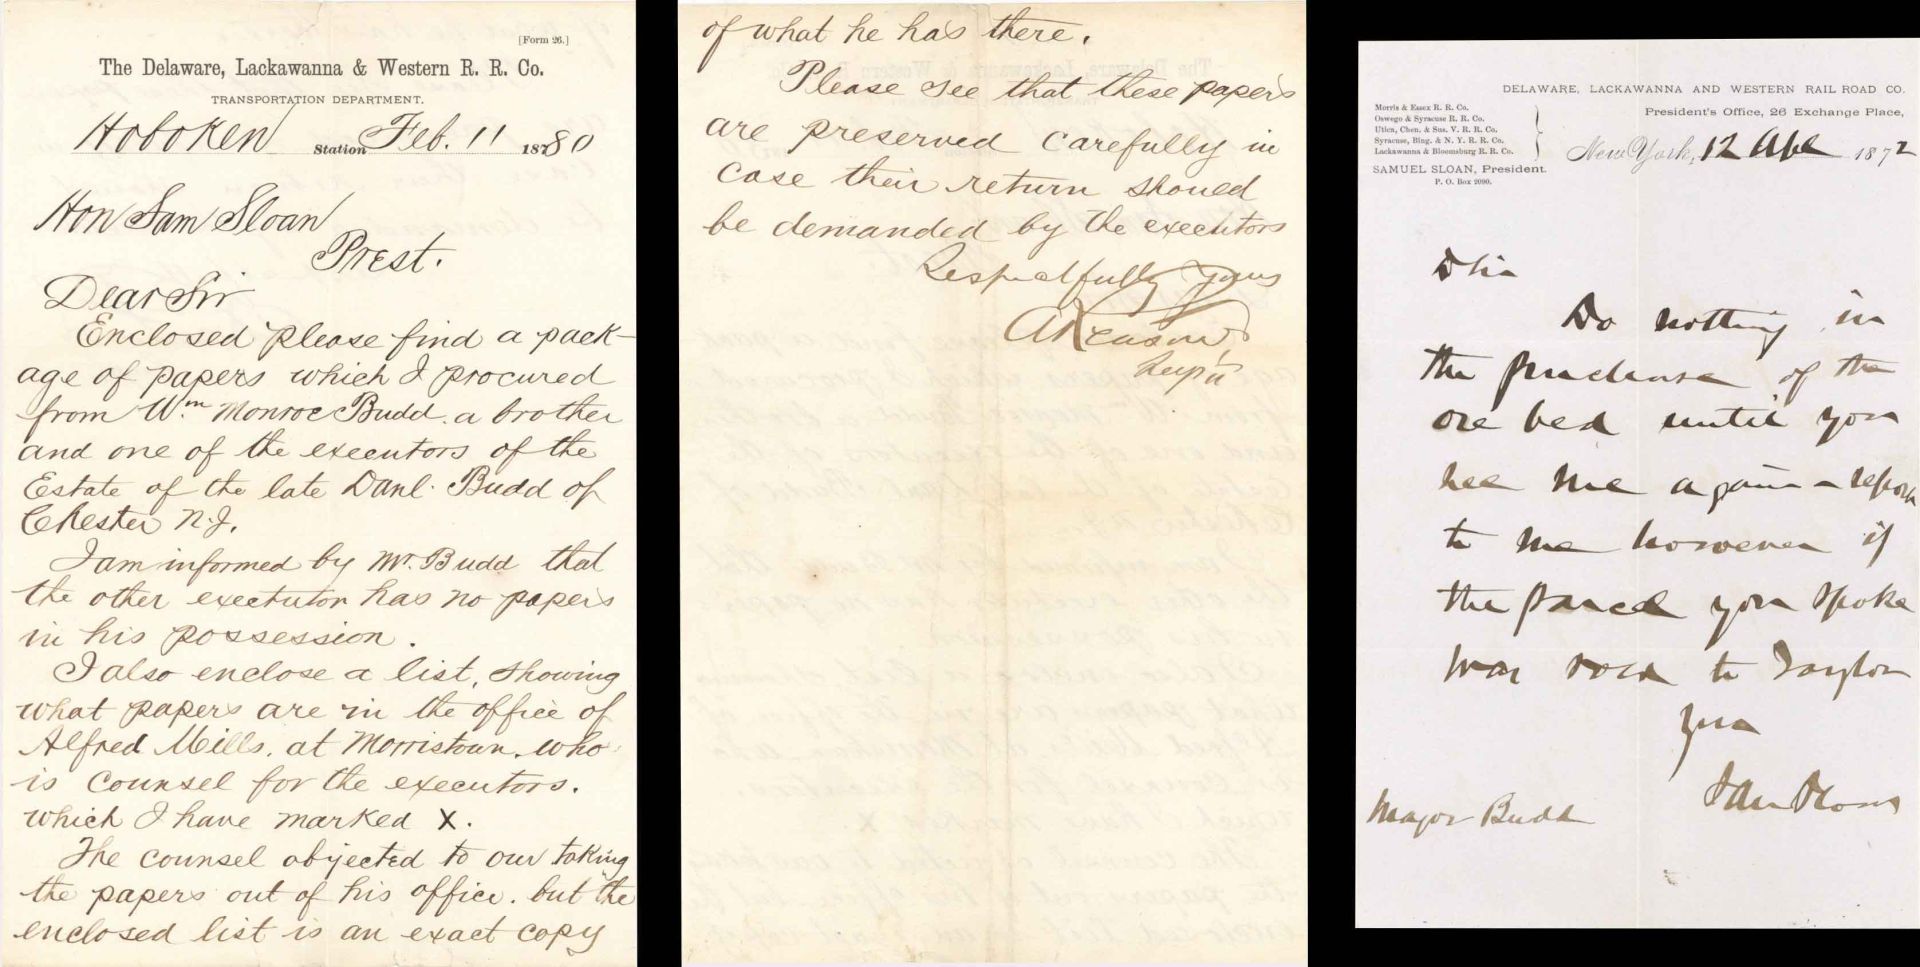 [Form 26.]
The Delaware, Lackawanna & Western R. R. Co.
TRANSPORTATION DEPARTMENT.
Hoboken Station Feb. 11 18780
Hon Sam Sloan
Prest.
Dear Sir
Enclosed please find a pack-
age of papers which I procured
from Wm Monroe Budd. a brother
and one of the executors of the
Estate of the late Danl. Budd of
Chester N.J.
I am informed by Mr. Budd that
the other exectutor has no papers
in his possession.
I also enclose a list, showing
what papers are in the office of
Alfred Mills, at Morristown, who
is counsel for the executors.
which I have marked X.
The counsel objected to our taking
the papers out of his office. but the
enclosed list is an exact copy
of what he has there.
Please see that these papers
are preserved carefully in
case their return should
be demanded by the executors
Respectfully Yours
A Reasoner
Supt
DELAWARE, LACKAWANNA AND WESTERN RAIL ROAD CO.
President's Office, 26 Exchange Place,
Morris & Essex R. R. Co.
Oswego & Syracuse R. R. Co.
Utica, Chen. & Sus. V. R. R. Co.
Syracuse, Bing. & N. Y. R. R. Co.
Lackawanna & Bloomsburg R. R. Co.
SAMUEL SLOAN, President.
P. O. Box 2090.
New York, 12 Apl 1872
D Sir
Do nothing in
the purchase of the
ore bed until you
see me again - report
to me however if
the parcel you spoke
was sold to Taylor
Yours
Sam Sloan
Major Budd